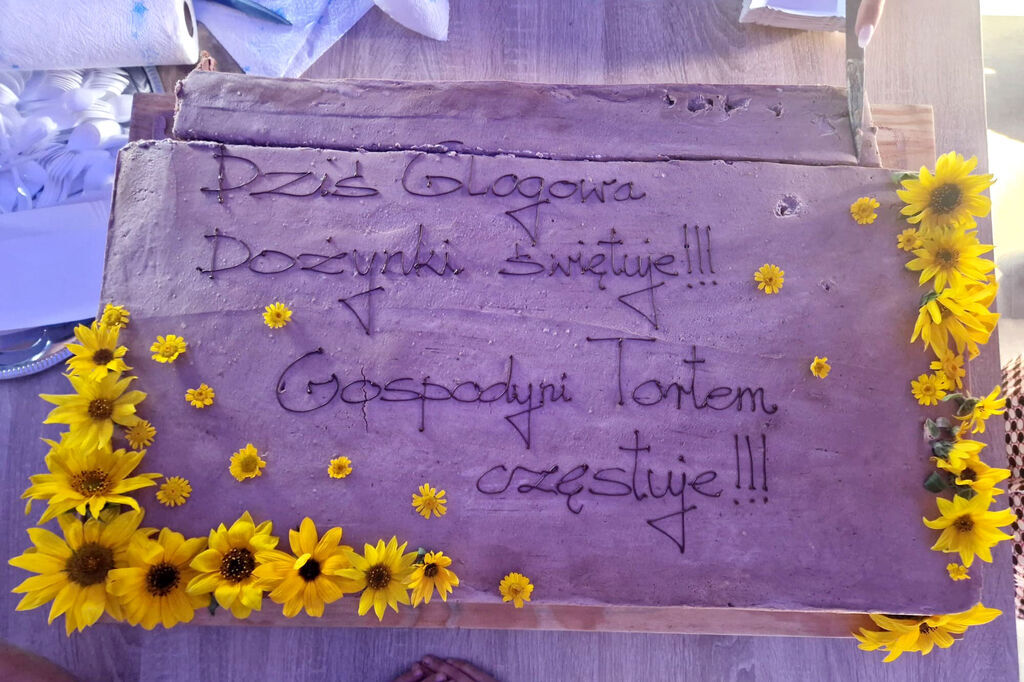 Dziś Głogowa
Dożynki świętuje!!!
Gospodyni Tortem
częstuje!!!